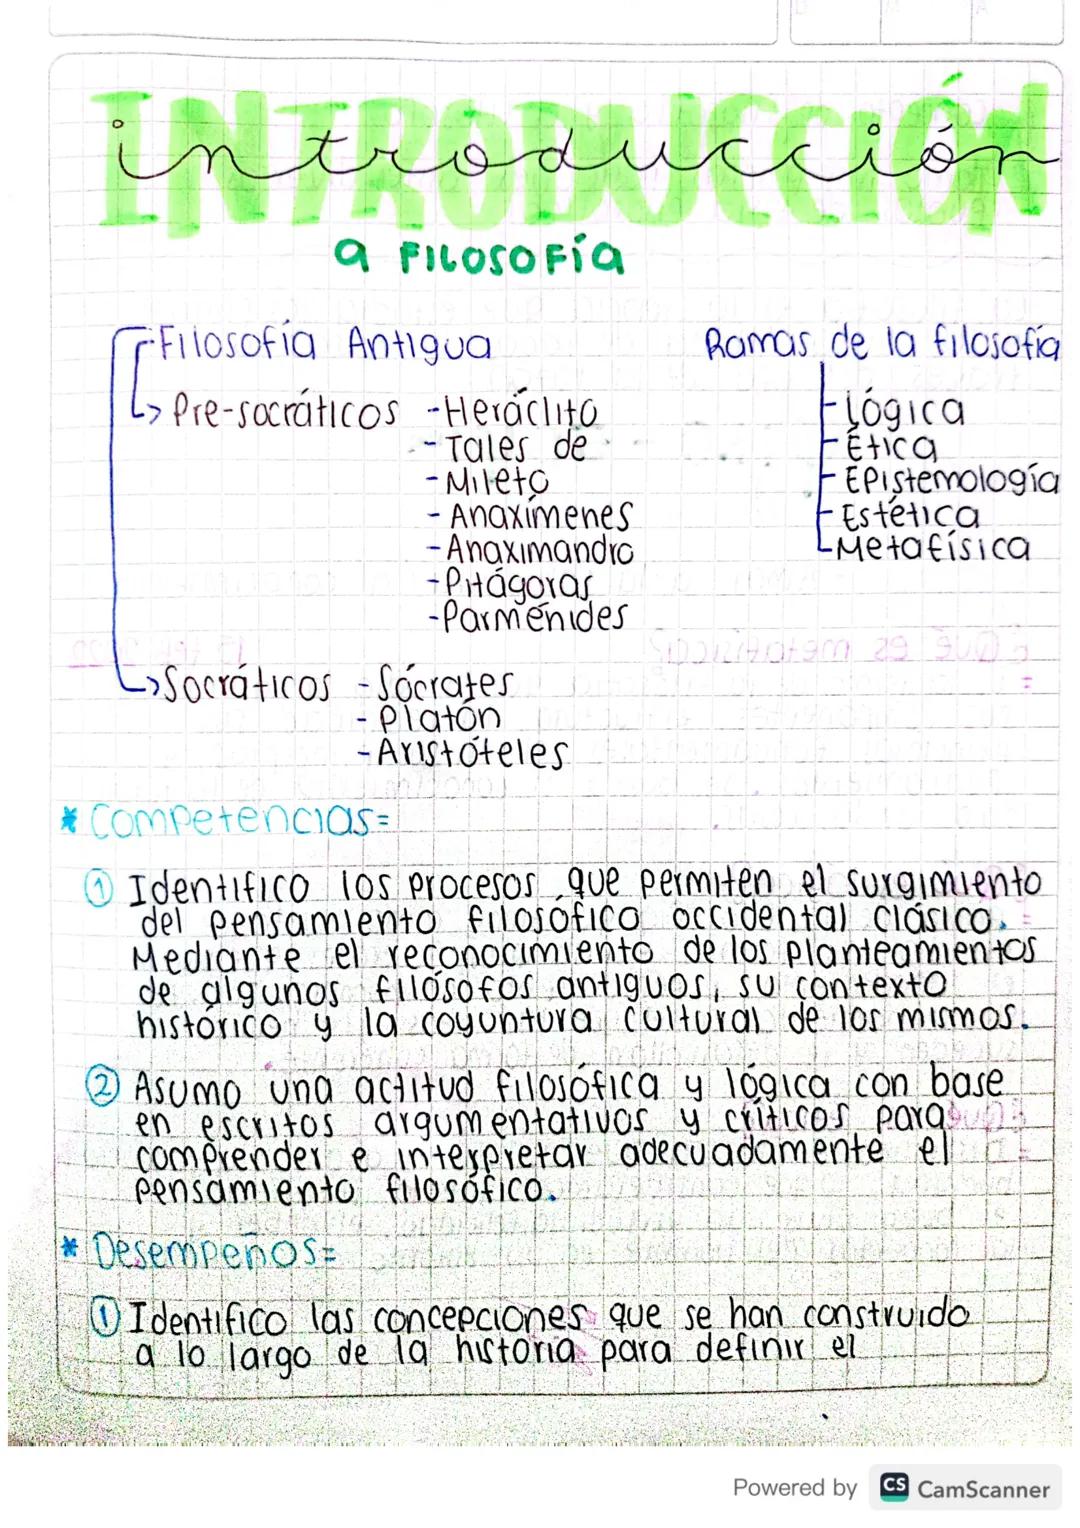 INTRODUCCIÓN
introducción
a FILOSOFÍA
Filosofía Antigua
Pre-socráticos -Heráclito
-Tales de
-Mileto
-Anaxímenes
-Anaximandro
-Pitágoras
-Parménides
Socráticos -Sócrates
-Platón
-Aristóteles
Ramas de la filosofía
-Lógica
-Ética
-Epistemología
-Estética
-Metafísica
* Competencias=
① Identifico los procesos que permiten el surgimiento
del pensamiento filosófico occidental clásico.
Mediante el reconocimiento de los planteamientos
de algunos filósofos antiguos, su contexto
histórico y la coyuntura cultural de los mismos.
② Asumo una actitud filosófica y lógica con base
en escritos argumentativos y críticos para
comprender e interpretar adecuadamente el
pensamiento filosófico.
* Desempeños=
① Identifico las concepciones que se han construido
a lo largo de la historia para definir el
Powered by CS CamScanner